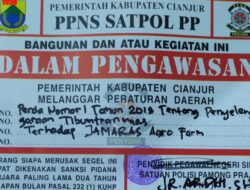 PEMERINTAH KABUPATEN CIANJUR
PPNS SATPOL PP
BANGUNAN DAN ATAU KEGIATAN INI
DALAM PENGAWASAN
PEMERINTAH KABUPATEN CIANJUR
MELANGGAR PERATURAN DAERAH
Perda Nomor 1 Tahun 2019 Tentang Penyelen
garaan Tibumtranmas
Terhadap JAMARAS Agro Farm
RANG SIAPA MERUSAK SEGEL INI
PAT DIKENAKAN SANKSI PIDANA
NJARA PALING LAMA DUA TAHUN
APAN BULAN PASAL 232 (1) KUHP
PENYIDIK PEGAWAI NEGERI
SATUAN POLISI PAMONG PR